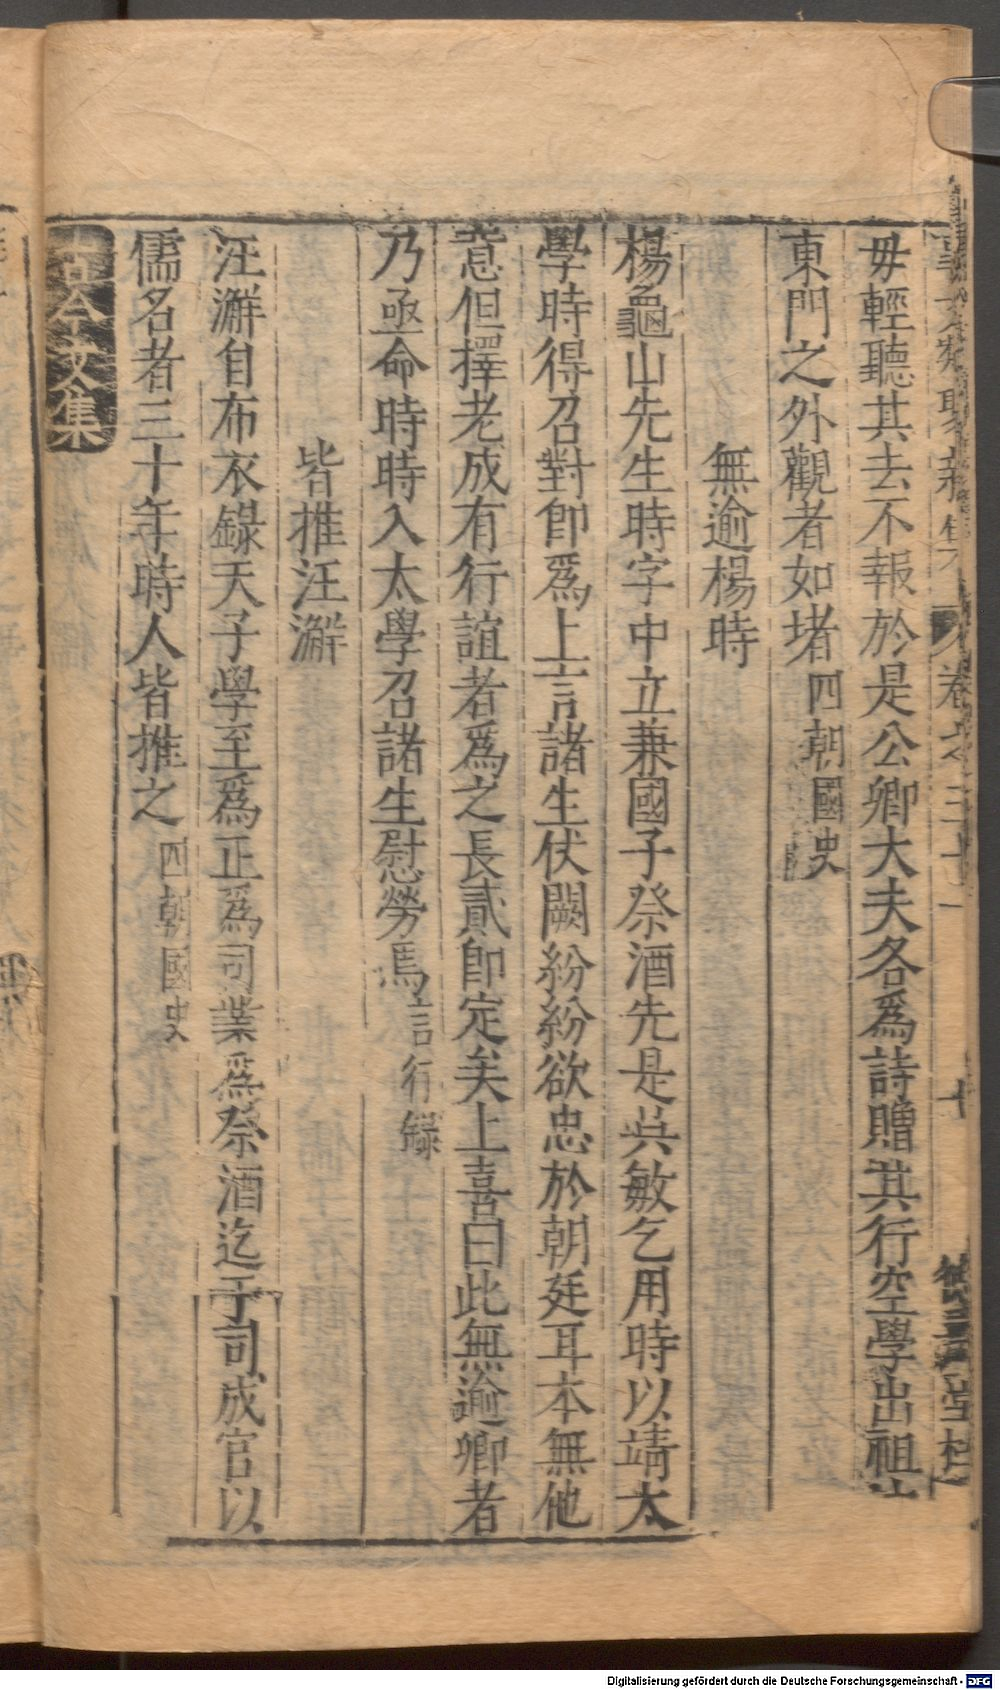 毋輕聽其去不報於是公卿大夫各爲詩贈其行空學出祖
東門之外觀者如堵四朝國史
無逾楊時
楊龜山先生時字中立兼國子祭酒先是吳敏乞用時以靖太
學時得召對卽爲上言諸生伏闕紛紛欲忠於朝廷耳本無他
意但擇老成有行誼者爲之長貳卽定矣上喜曰此無逾卿者
乃亟命時時入太學召諸生慰勞焉言行錄
皆推汪澥
汪澥自布衣錄天子學至爲正爲司業爲祭酒迄于司成官以
儒名者三十年時人皆推之四朝國史
古今文集
卷之三十一
十
Digitalisierung gefördert durch die Deutsche Forschungsgemeinschaft - DFG